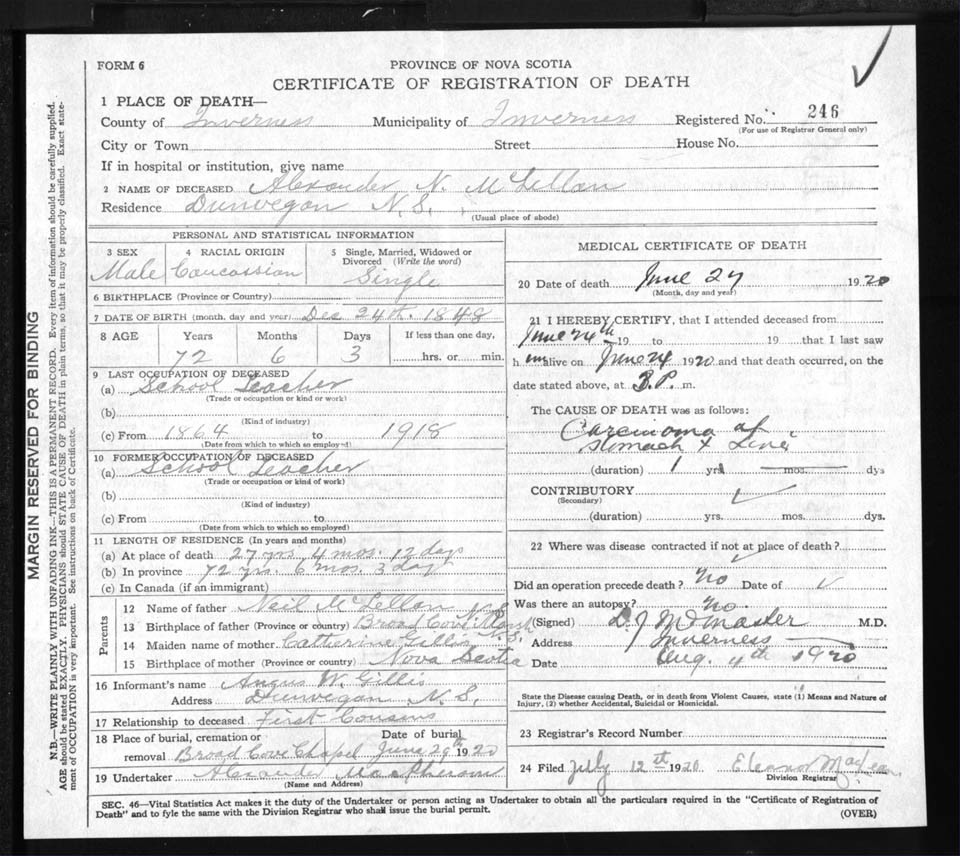 FORM 6
PROVINCE OF NOVA SCOTIA
CERTIFICATE OF REGISTRATION OF DEATH
MARGIN RESERVED FOR BINDING
N.B.—WRITE PLAINLY WITH UNFADING INK—THIS IS A PERMANENT RECORD. Every item of information should be carefully supplied.
AGE should be stated EXACTLY. PHYSICIANS should STATE CAUSE OF DEATH in plain terms, so that it may be properly classified. Exact state-
ment of OCCUPATION is very important. See instructions on back of Certificate.
1 PLACE OF DEATH—
County of Inverness Municipality of Inverness Registered No. 246
(For use of Registrar General only)
City or Town Street House No.
If in hospital or institution, give name
2 NAME OF DECEASED Alexander N. McLellan
Residence Dunvegan N.S.
(Usual place of abode)
PERSONAL AND STATISTICAL INFORMATION
3 SEX 4 RACIAL ORIGIN 5 Single, Married, Widowed or
Divorced (Write the word)
Male Caucassian Single
6 BIRTHPLACE (Province or Country)
7 DATE OF BIRTH (month, day and year) Dec 24th. 1848
8 AGE Years Months Days If less than one day,
72 6 3 hrs. or min.
9 LAST OCCUPATION OF DECEASED
(a) School Teacher
(Trade or occupation or kind or work)
(b)
(Kind of industry)
(c) From 1864 to 1918
(Date from which to which so employed)
10 FORMER OCCUPATION OF DECEASED
(a) School Teacher
(Trade or occupation or kind of work)
(b)
(Kind of industry)
(c) From to
(Date from which to which so employed)
11 LENGTH OF RESIDENCE (In years and months)
(a) At place of death 27 yrs 4 mos. 12 days
(b) In province 72 yrs. 6 mos. 3 days
(c) In Canada (if an immigrant)
Parents
12 Name of father Neil McLellan
13 Birthplace of father (Province or country) Broad Cove Marsh N.S.
14 Maiden name of mother Catherine Gillis
15 Birthplace of mother (Province or country) Nova Scotia
16 Informant's name Angus W. Gillis
Address Dunvegan N.S.
17 Relationship to deceased First Cousins
18 Place of burial, cremation or Date of burial
removal Broad Cove Chapel June 29th 1920
19 Undertaker Alexander MacPherson
(Name and Address)
MEDICAL CERTIFICATE OF DEATH
20 Date of death June 27 1920
(Month, day and year)
21 I HEREBY CERTIFY, that I attended deceased from
June 24th 19 to 19 that I last saw
him alive on June 24 1920 and that death occurred, on the
date stated above, at 3 P. m.
The CAUSE OF DEATH was as follows:
Carcinoma of
stomach + Liver
(duration) 1 yrs mos. dys
CONTRIBUTORY
(Secondary)
(duration) yrs. mos. dys.
22 Where was disease contracted if not at place of death?
Did an operation precede death? No Date of
Was there an autopsy? no.
(Signed) D. J. McMaster M.D.
Address Inverness
Date Aug. 4th 1920
State the Disease causing Death, or in death from Violent Causes, state (1) Means and Nature of
Injury, (2) whether Accidental, Suicidal or Homicidal.
23 Registrar's Record Number
24 Filed July 12th 1920 Eleanor MacLean
Division Registrar
SEC. 46—Vital Statistics Act makes it the duty of the Undertaker or person acting as Undertaker to obtain all the particulars required in the "Certificate of Registration of
Death" and to fyle the same with the Division Registrar who shall issue the burial permit.
(OVER)